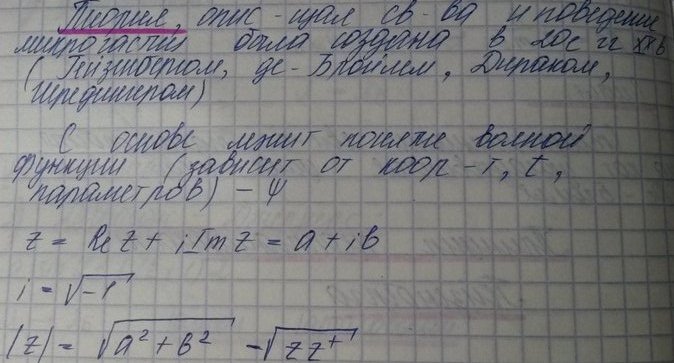 Теория, опис-щая св-ва и поведение
микрочастиц была создана в 20е гг XX в
(Гейзенбергом, де-Бройлем, Дираком,
Шредингером)
С основе лежит понятие волной
функции (зависит от коор-т, t,
параметров) – ψ
z = Re z + i Im z = a + ib
i = √-1
|z| = √a² + b² - √zz⁺